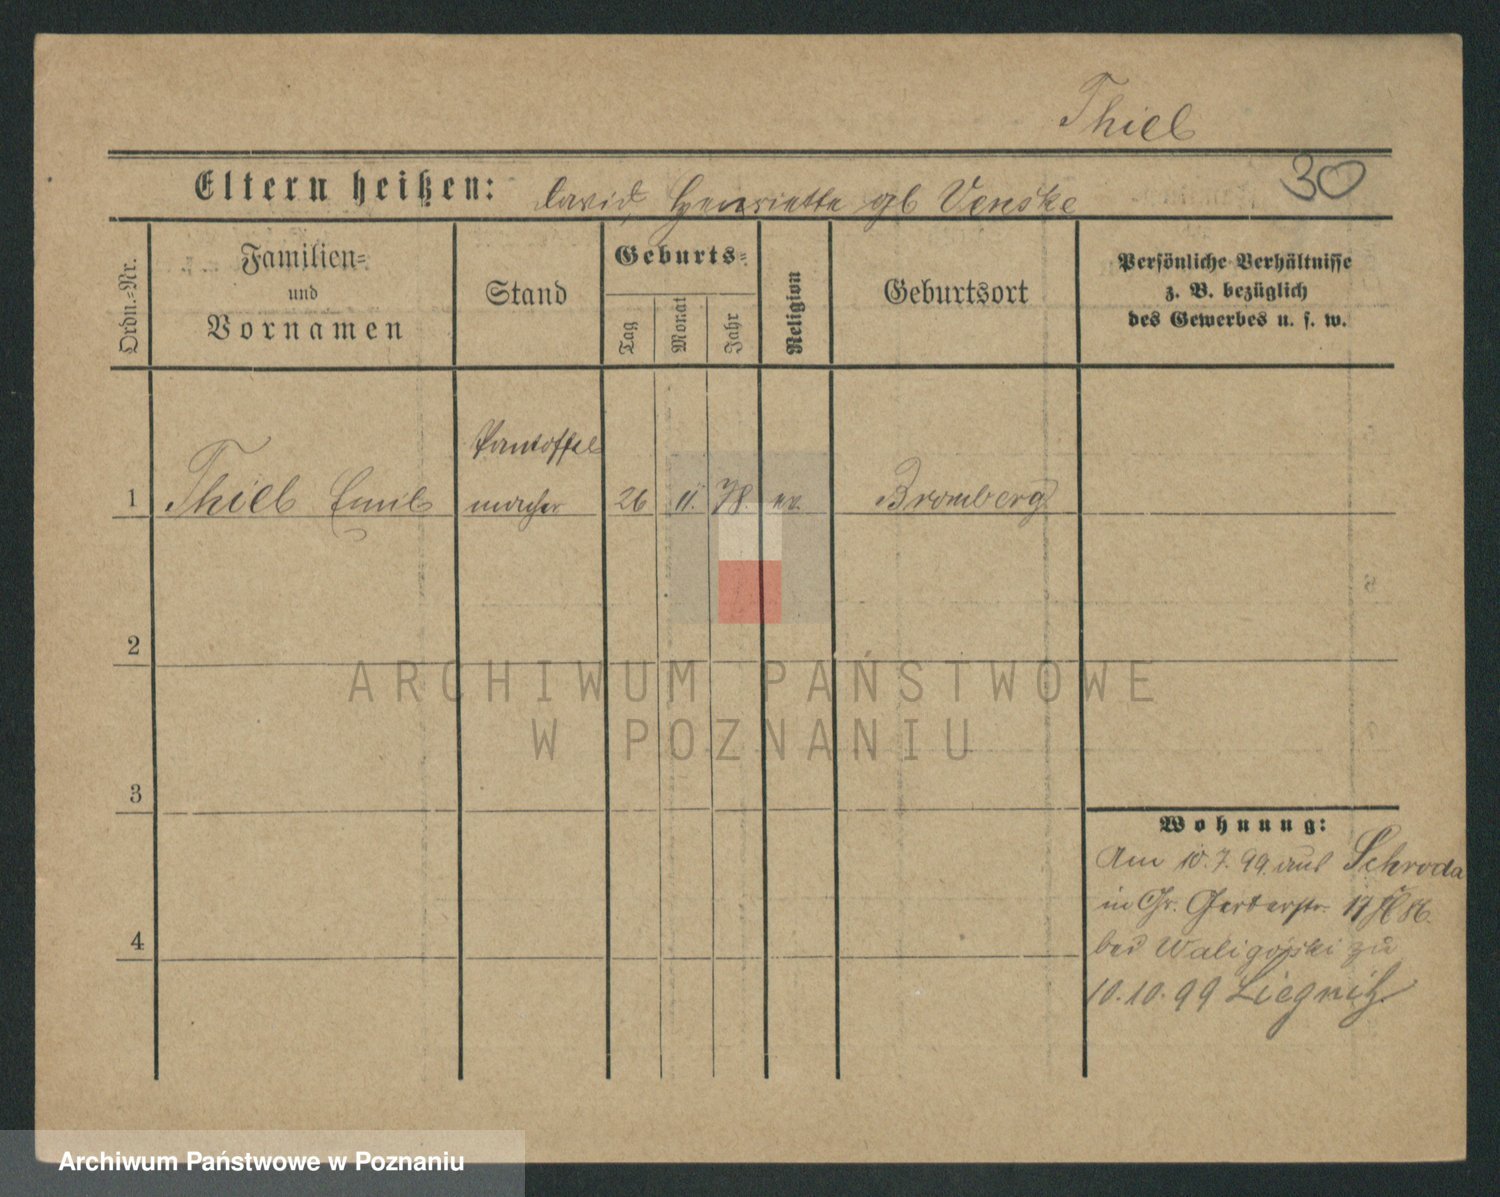 Thiel
30
Eltern heißen: David, Henriette gb Venske
Ordn.=Nr.
Familien=
und
Vornamen
Stand
Geburts=
Tag
Monat
Jahr
Religion
Geburtsort
Persönliche Verhältnisse
z. B. bezüglich
des Gewerbes u. s. w.
1 Thiel Emil
Pantoffel
macher
26 11. 78. ev. Bromberg
2
3
4
Wohnung:
Am 10. 7. 99 aus Schroda
in Gr. Gerberstr. 17
bei Waligórski zu
10. 10. 99 Liegnitz
ARCHIWUM PAŃSTWOWE
W POZNANIU
Archiwum Państwowe w Poznaniu